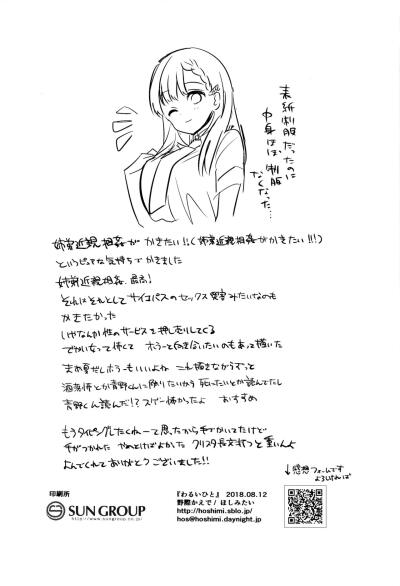 表紙制服だったのに
中身はほぼ制服
なくなった…
姉弟近親相姦がかきたい!!(姉弟近親相姦がかきたい!!!)
というピュアな気持ちでかきました
姉弟近親相姦、最高!
それはそれとしてサイコパスのセックス異常みたいなのも
かきたかった
しかもなんか性のサービスを押し売りしてくる
でかい女って怖くて ホラーと向き合いたいのもあって描いた
まあ夏だしホラーもいいよね これ描きながらずっと
青野くん読んだ!? スゲー怖かったよ おすすめ
もうタイピングしたくねーって思ったから手でかいてたけど
手がつかれた やめとけばよかった クリスタ長文打つと重いんよ
よんでくれてありがとうございました!!
↓感想フォームです
よろしければ
印刷所
SUN GROUP
『わるいひと』 2018.08.12
野際かえで / ほしみたい
http://hoshimi.sblo.jp/
hos@hoshimi.daynight.jp